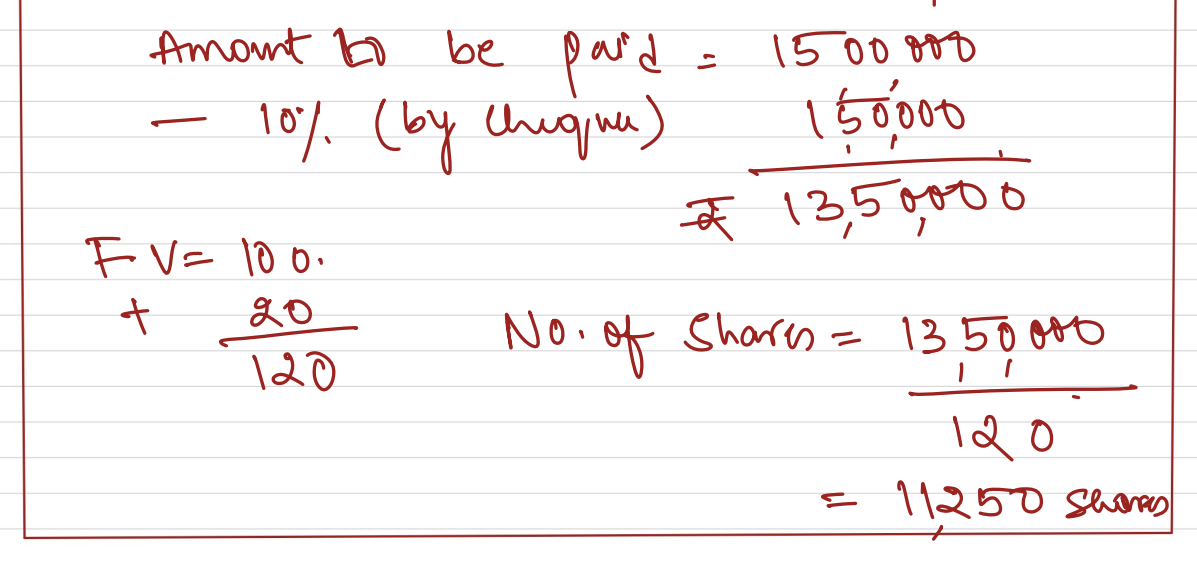 Amount to be paid = 1500000
- 10% (by cheque) 150000
₹ 13,50,000
FV = 100.
+ 20
120
No. of shares = 13,50,000
120
= 11,250 shares